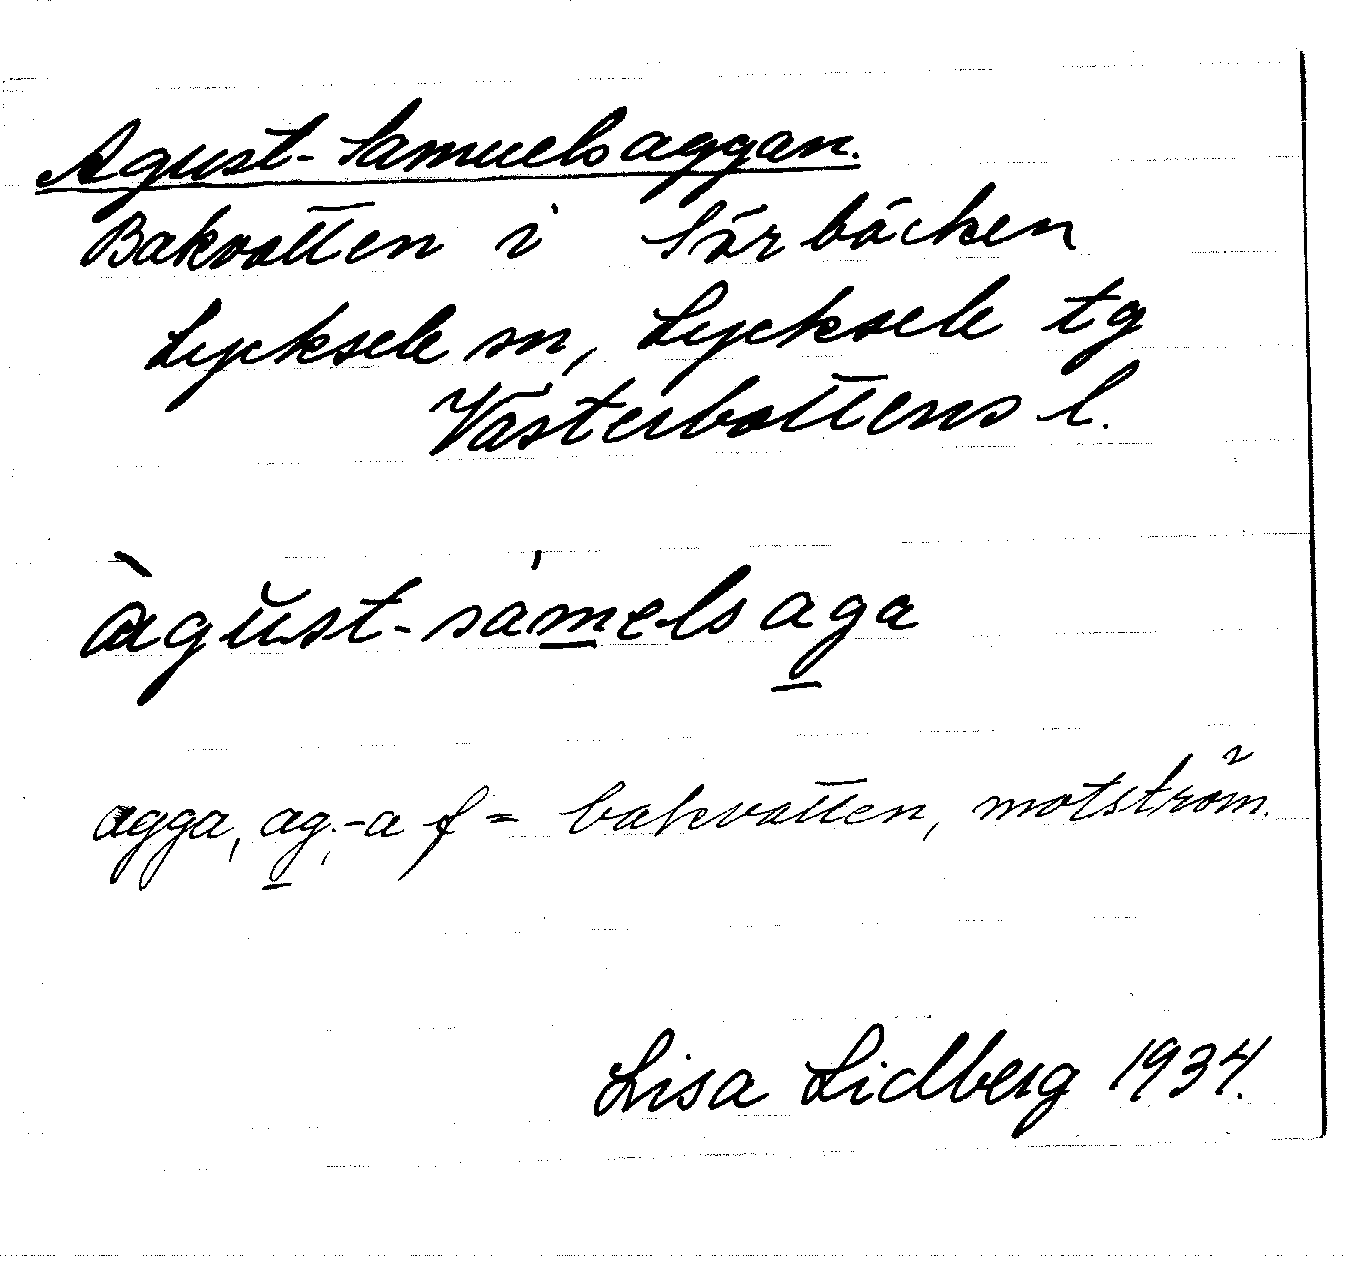 Agust-Samuelsaggan.
Bakvatten i Sörbäcken
Lycksele sn, Lycksele tg
Västerbottens l.
àgŭst-sa̍melsaga
agga, ag,-a f = bakvatten, motström.
Lisa Lidberg 1934.